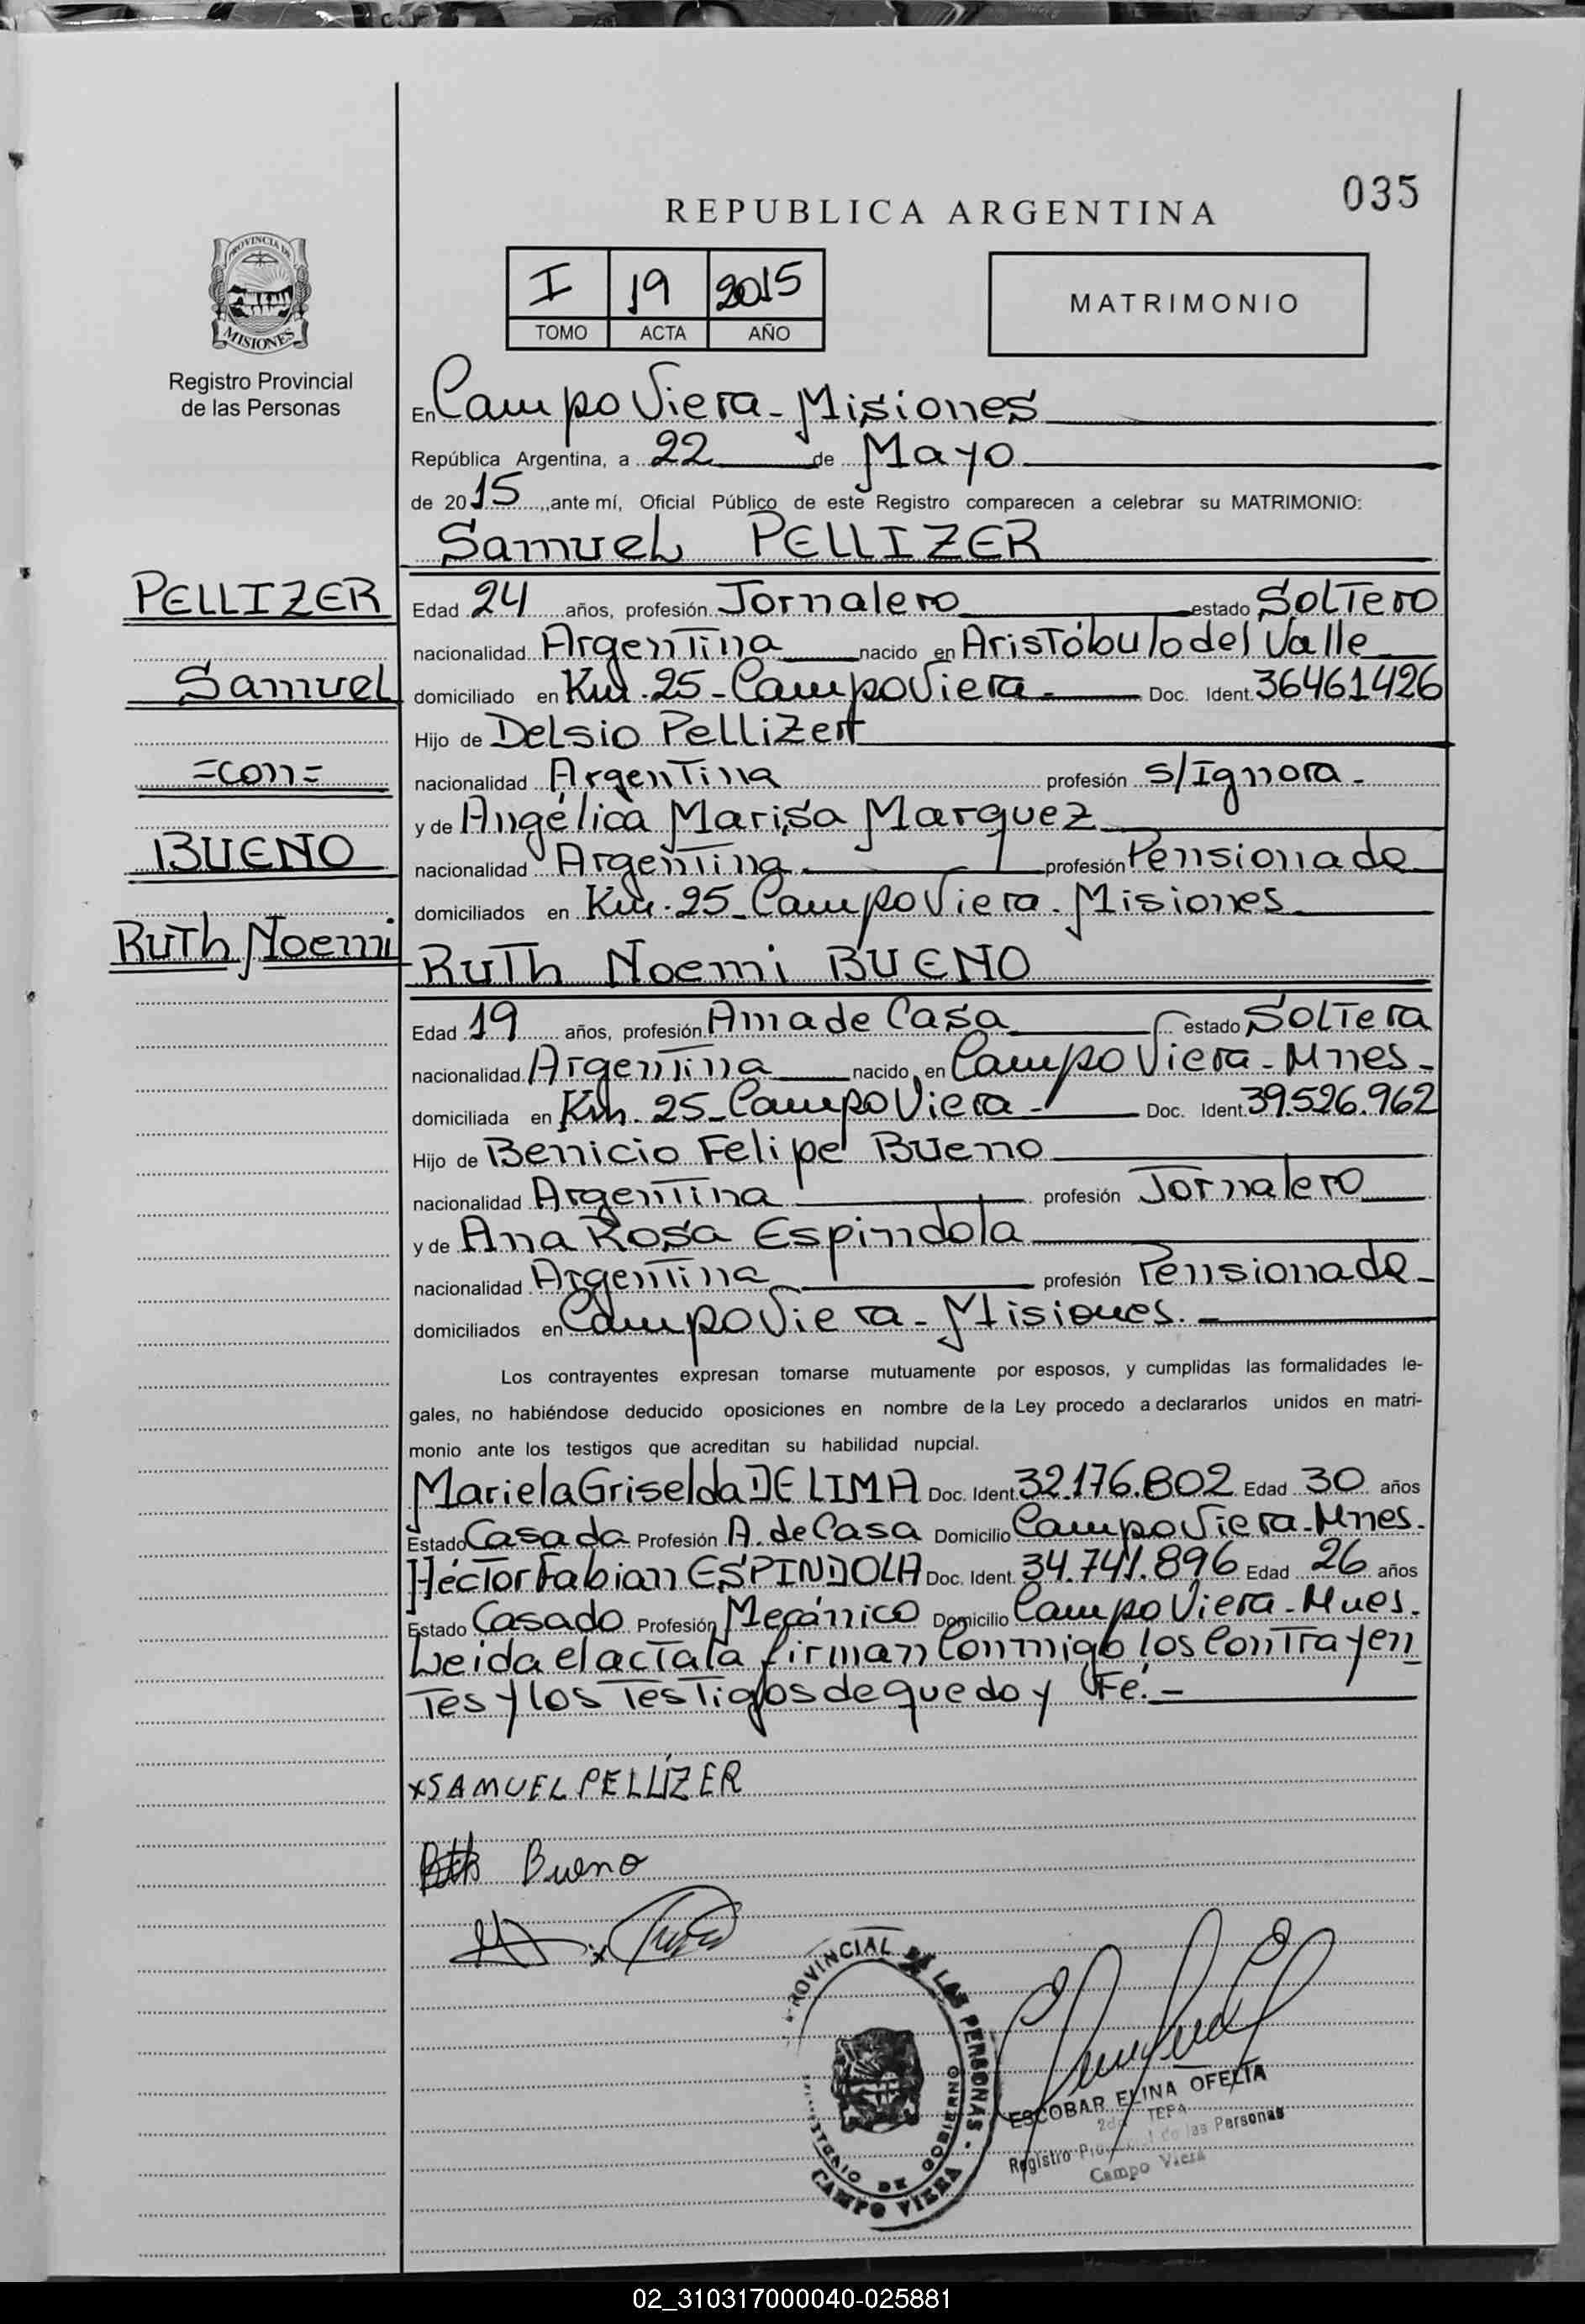 035
REPUBLICA ARGENTINA
PROVINCIA DE
MISIONES
Registro Provincial
de las Personas
I 19 2015
TOMO ACTA AÑO
MATRIMONIO
En Campo Viera - Misiones
República Argentina, a 22 de Mayo
de 2015, ante mí, Oficial Público de este Registro comparecen a celebrar su MATRIMONIO:
Samuel PELLIZER
PELLIZER
Samuel
=con=
BUENO
Ruth Noemi
Edad 24 años, profesión Jornalero estado Soltero
nacionalidad Argentina nacido en Aristóbulo del Valle
domiciliado en Km. 25 - Campo Viera - Doc. Ident. 36461426
Hijo de Delsio Pellizer
nacionalidad Argentina profesión s/Ignora -
y de Angélica Marisa Marquez
nacionalidad Argentina profesión Pensionada
domiciliados en Km. 25 - Campo Viera - Misiones
Ruth Noemi BUENO
Edad 19 años, profesión Ama de Casa estado Soltera
nacionalidad Argentina nacido en Campo Viera - Mnes -
domiciliada en Km. 25 - Campo Viera - Doc. Ident. 39.526.962
Hijo de Benicio Felipe Bueno
nacionalidad Argentina profesión Jornalero
y de Ana Rosa Espindola
nacionalidad Argentina profesión Pensionada -
domiciliados en Campo Viera - Misiones. -
Los contrayentes expresan tomarse mutuamente por esposos, y cumplidas las formalidades le-
gales, no habiéndose deducido oposiciones en nombre de la Ley procedo a declararlos unidos en matri-
monio ante los testigos que acreditan su habilidad nupcial.
Mariela Griselda DE LIMA Doc. Ident. 32.176.802 Edad 30 años
Estado Casada Profesión A. de Casa Domicilio Campo Viera - Mnes.
Héctor Fabian ESPINDOLA Doc. Ident. 34.741.896 Edad 26 años
Estado Casado Profesión Mecánico Domicilio Campo Viera - Mnes.
Leida el acta la firman Conmigo los Contrayen
tes y los Testigos de que doy Fé. -
x SAMUEL PELLIZER
Bueno
PROVINCIAL DE LAS PERSONAS -
MINISTERIO DE GOBIERNO
CAMPO VIERA
ESCOBAR ELINA OFELIA
Registro Provincial de las Personas
Campo Viera
02_310317000040-025881